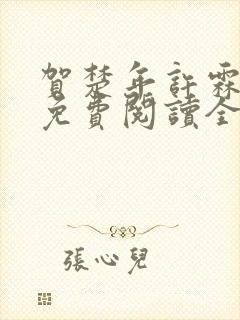 賀楚年許霖
免費閱讀全
張心兒